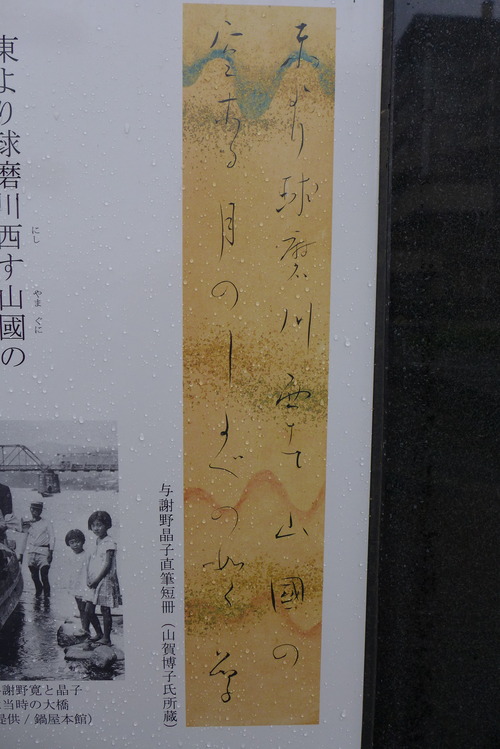 東より球磨川西す山國の
空ある月のしづくの如く 晶子
与謝野晶子直筆短冊(山賀博子氏所蔵)
東より球磨川西す山國の
にし
やま ぐに
謝野寛と晶子
当時の大橋
提供/鍋屋本館)